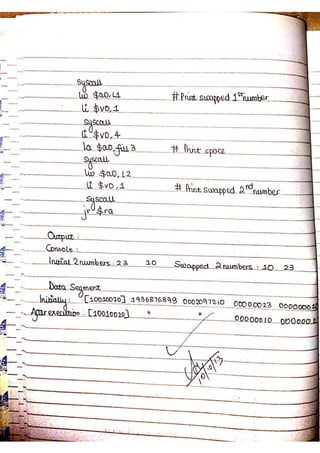 syscall
lw $a0, L1
li $v0, 1 # Print swapped 1st number.
syscall
li $v0, 4
la $a0, fill3 # Print space
syscall
lw $a0, L2
li $v0, 1 # Print swapped 2nd number
syscall
jr $ra
Output :
Console :
Initial 2 numbers : 23 10 Swapped 2 numbers : 10 23
Data Segment
Initially : [10010020] 1936876898 0002097210 00000023
After execution : [10010020] " " 00000010
10/10/13